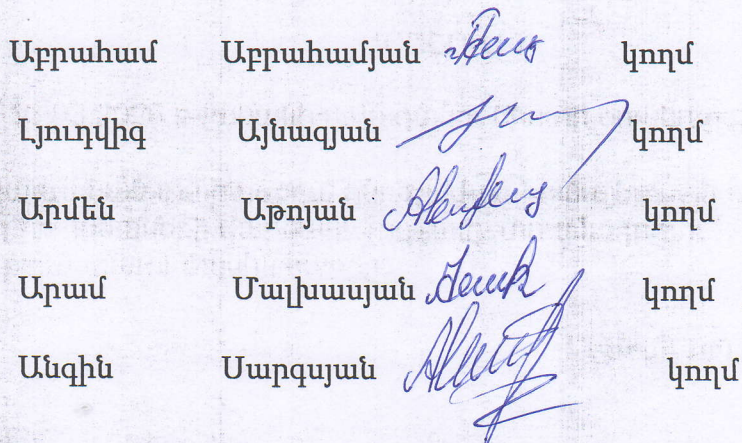 Աբրահամ Աբրահամյան կողմ
Լյուդվիգ Այնազյան կողմ
Արմեն Աթոյան կողմ
Արամ Մալխասյան կողմ
Անգին Սարգսյան կողմ